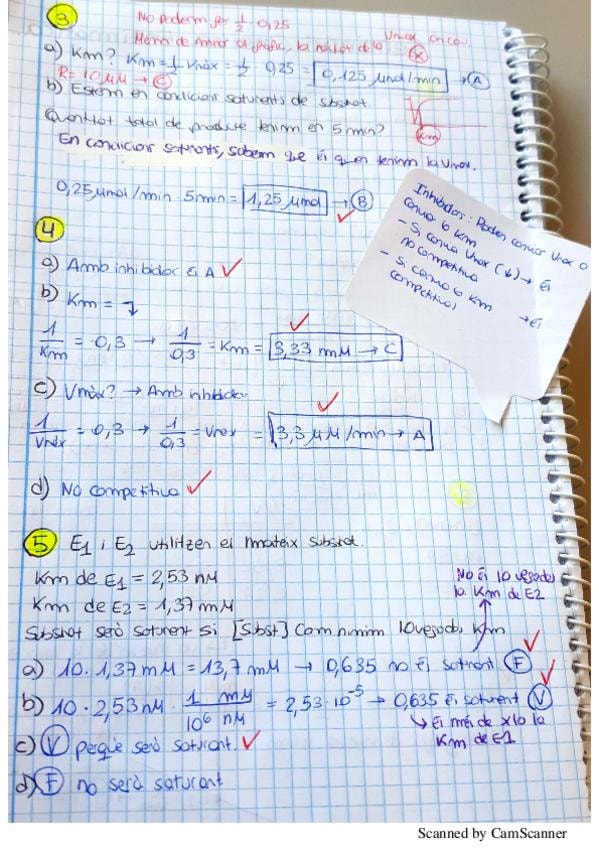 3
No podem fer 1/2 0,25.
Hem de mirar el gràfic, la meitat de la Vmax
a) Km? Km = 1/2 Vmàx = 1/2 0,25 = 0,125 µmol/min → A
R = 10 µM → C
b) Estem en condicions saturants de substrat.
Quantitat total de producte tenim en 5 min?
Km
En condicions saturants, sabem que és quan tenim la Vmax.
0,25 µmol/min · 5 min = 1,25 µmol → B
Inhibidors: Poden canviar Vmax o
canvia la Km
- Si canvia Vmax (↓) → És
no competitiva
- Si canvia la Km → És
competitiva
4
a) Amb inhibidor és A
b) Km =
1/Km = 0,3 → 1/0,3 = Km = 3,33 mM → C
c) Vmàx? → Amb inhibidor
1/Vmàx = 0,3 → 1/0,3 = Vmax = 3,3 µM/min → A
d) No competitiva
5 E1 i E2 utilitzen el mateix substrat.
Km de E1 = 2,53 nM
Km de E2 = 1,37 mM
No és 10 vegades
la Km de E2
Substrat serà saturant si [Subst] com a mínim 10 vegades Km
a) 10 · 1,37 mM = 13,7 mM → 0,635 no és saturant F
b) 10 · 2,53 nM · 1 mM/10⁶ nM = 2,53·10⁻⁵ → 0,635 és saturant V
→ És més de x10 la
Km de E1
c) V perquè serà saturant.
d) F no serà saturant
Scanned by CamScanner